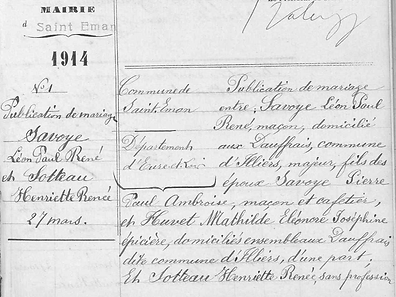 MAIRIE
d Saint Eman
1914
N° 1
Publication de mariage
Savoye
Léon Paul René
et Sotteau
Henriette Renée
27 mars.
Commune de
Saint Eman
Département
d'Eure et Loir
Publication de mariage
entre, Savoye Léon Paul
René, maçon, domicilié
aux Dauffrais, commune
d'Illiers, majeur, fils des
époux Savoye Pierre
Paul Ambroise, maçon et cafetier,
et Huvet Mathilde Eléonore Joséphine
épicière, domiciliés ensemble aux Dauffrais
dite commune d'Illiers, d'une part.
Et Sotteau Henriette Renée, sans profession